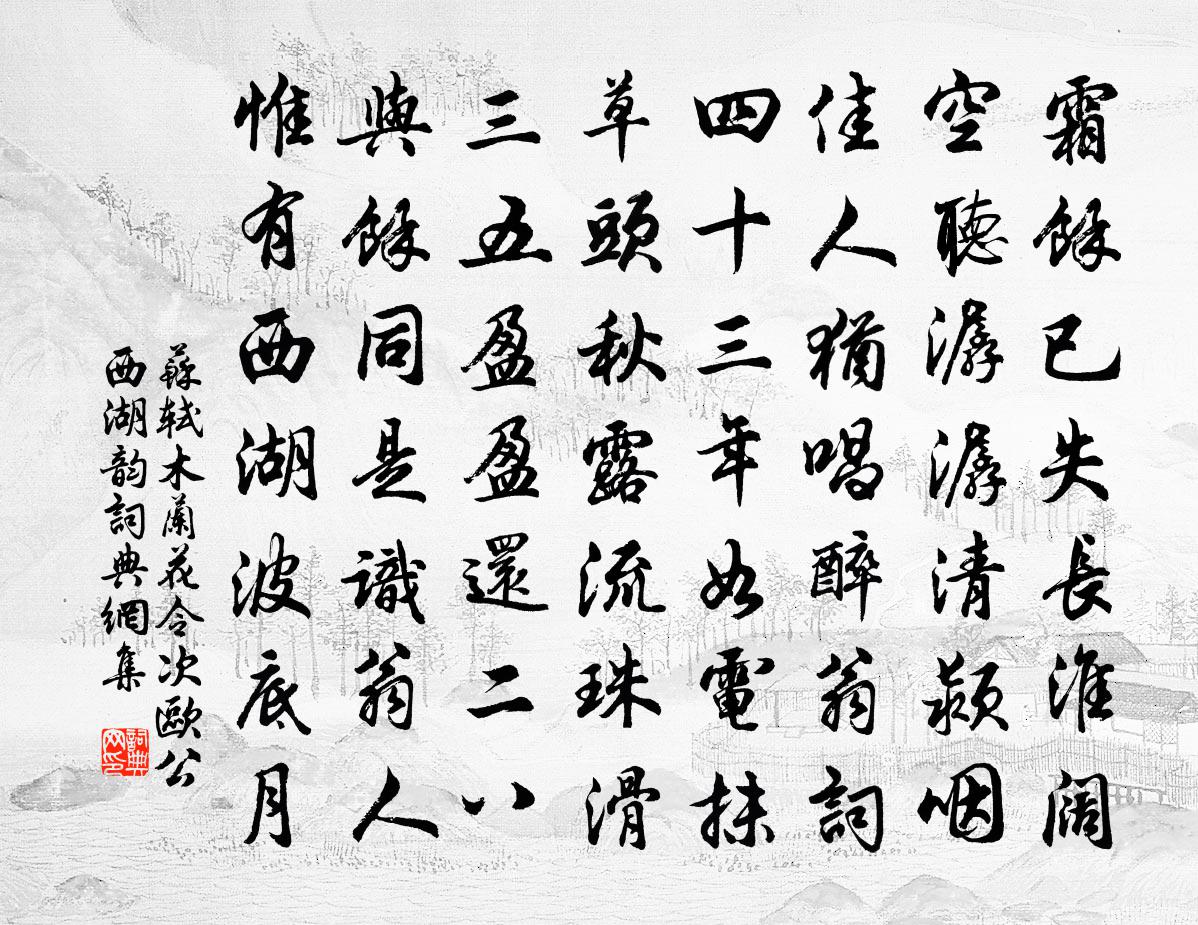 霜餘已失長淮闊
空聽潺潺清潁咽
佳人猶唱醉翁詞
四十三年如電抹
草頭秋露流珠滑
三五盈盈還二八
與餘同是識翁人
惟有西湖波底月
蘇軾木蘭花令次歐公
西湖韵詞典網集
詞典网印